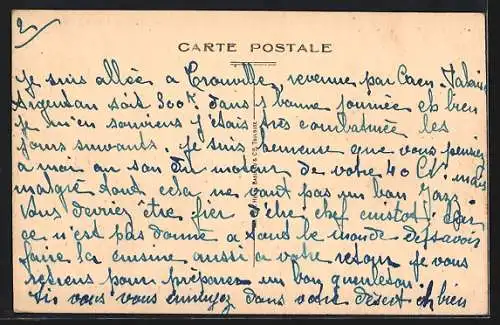 2
CARTE POSTALE
Je suis allée a Trouville, revenue par Caen. Falaise
Argentan soit 300 K. dans 1 bonne journée eh bien
je m'en souviens j'étais très combaturée les
jours suivants. Je suis heureuse que vous pensiez
a moi au son du moteur de votre 40 CV. mais
malgré tout cela ne vaut pas un bon Jazz
Vous devriez être fier d'être chef cuistot! Car
ce n'est pas donné a tout le monde de savoir
faire la cuisine aussi a votre retour je vous
retiens pour préparer un bon gueuleton.
Si vous vous ennuyez dans votre désert eh bien